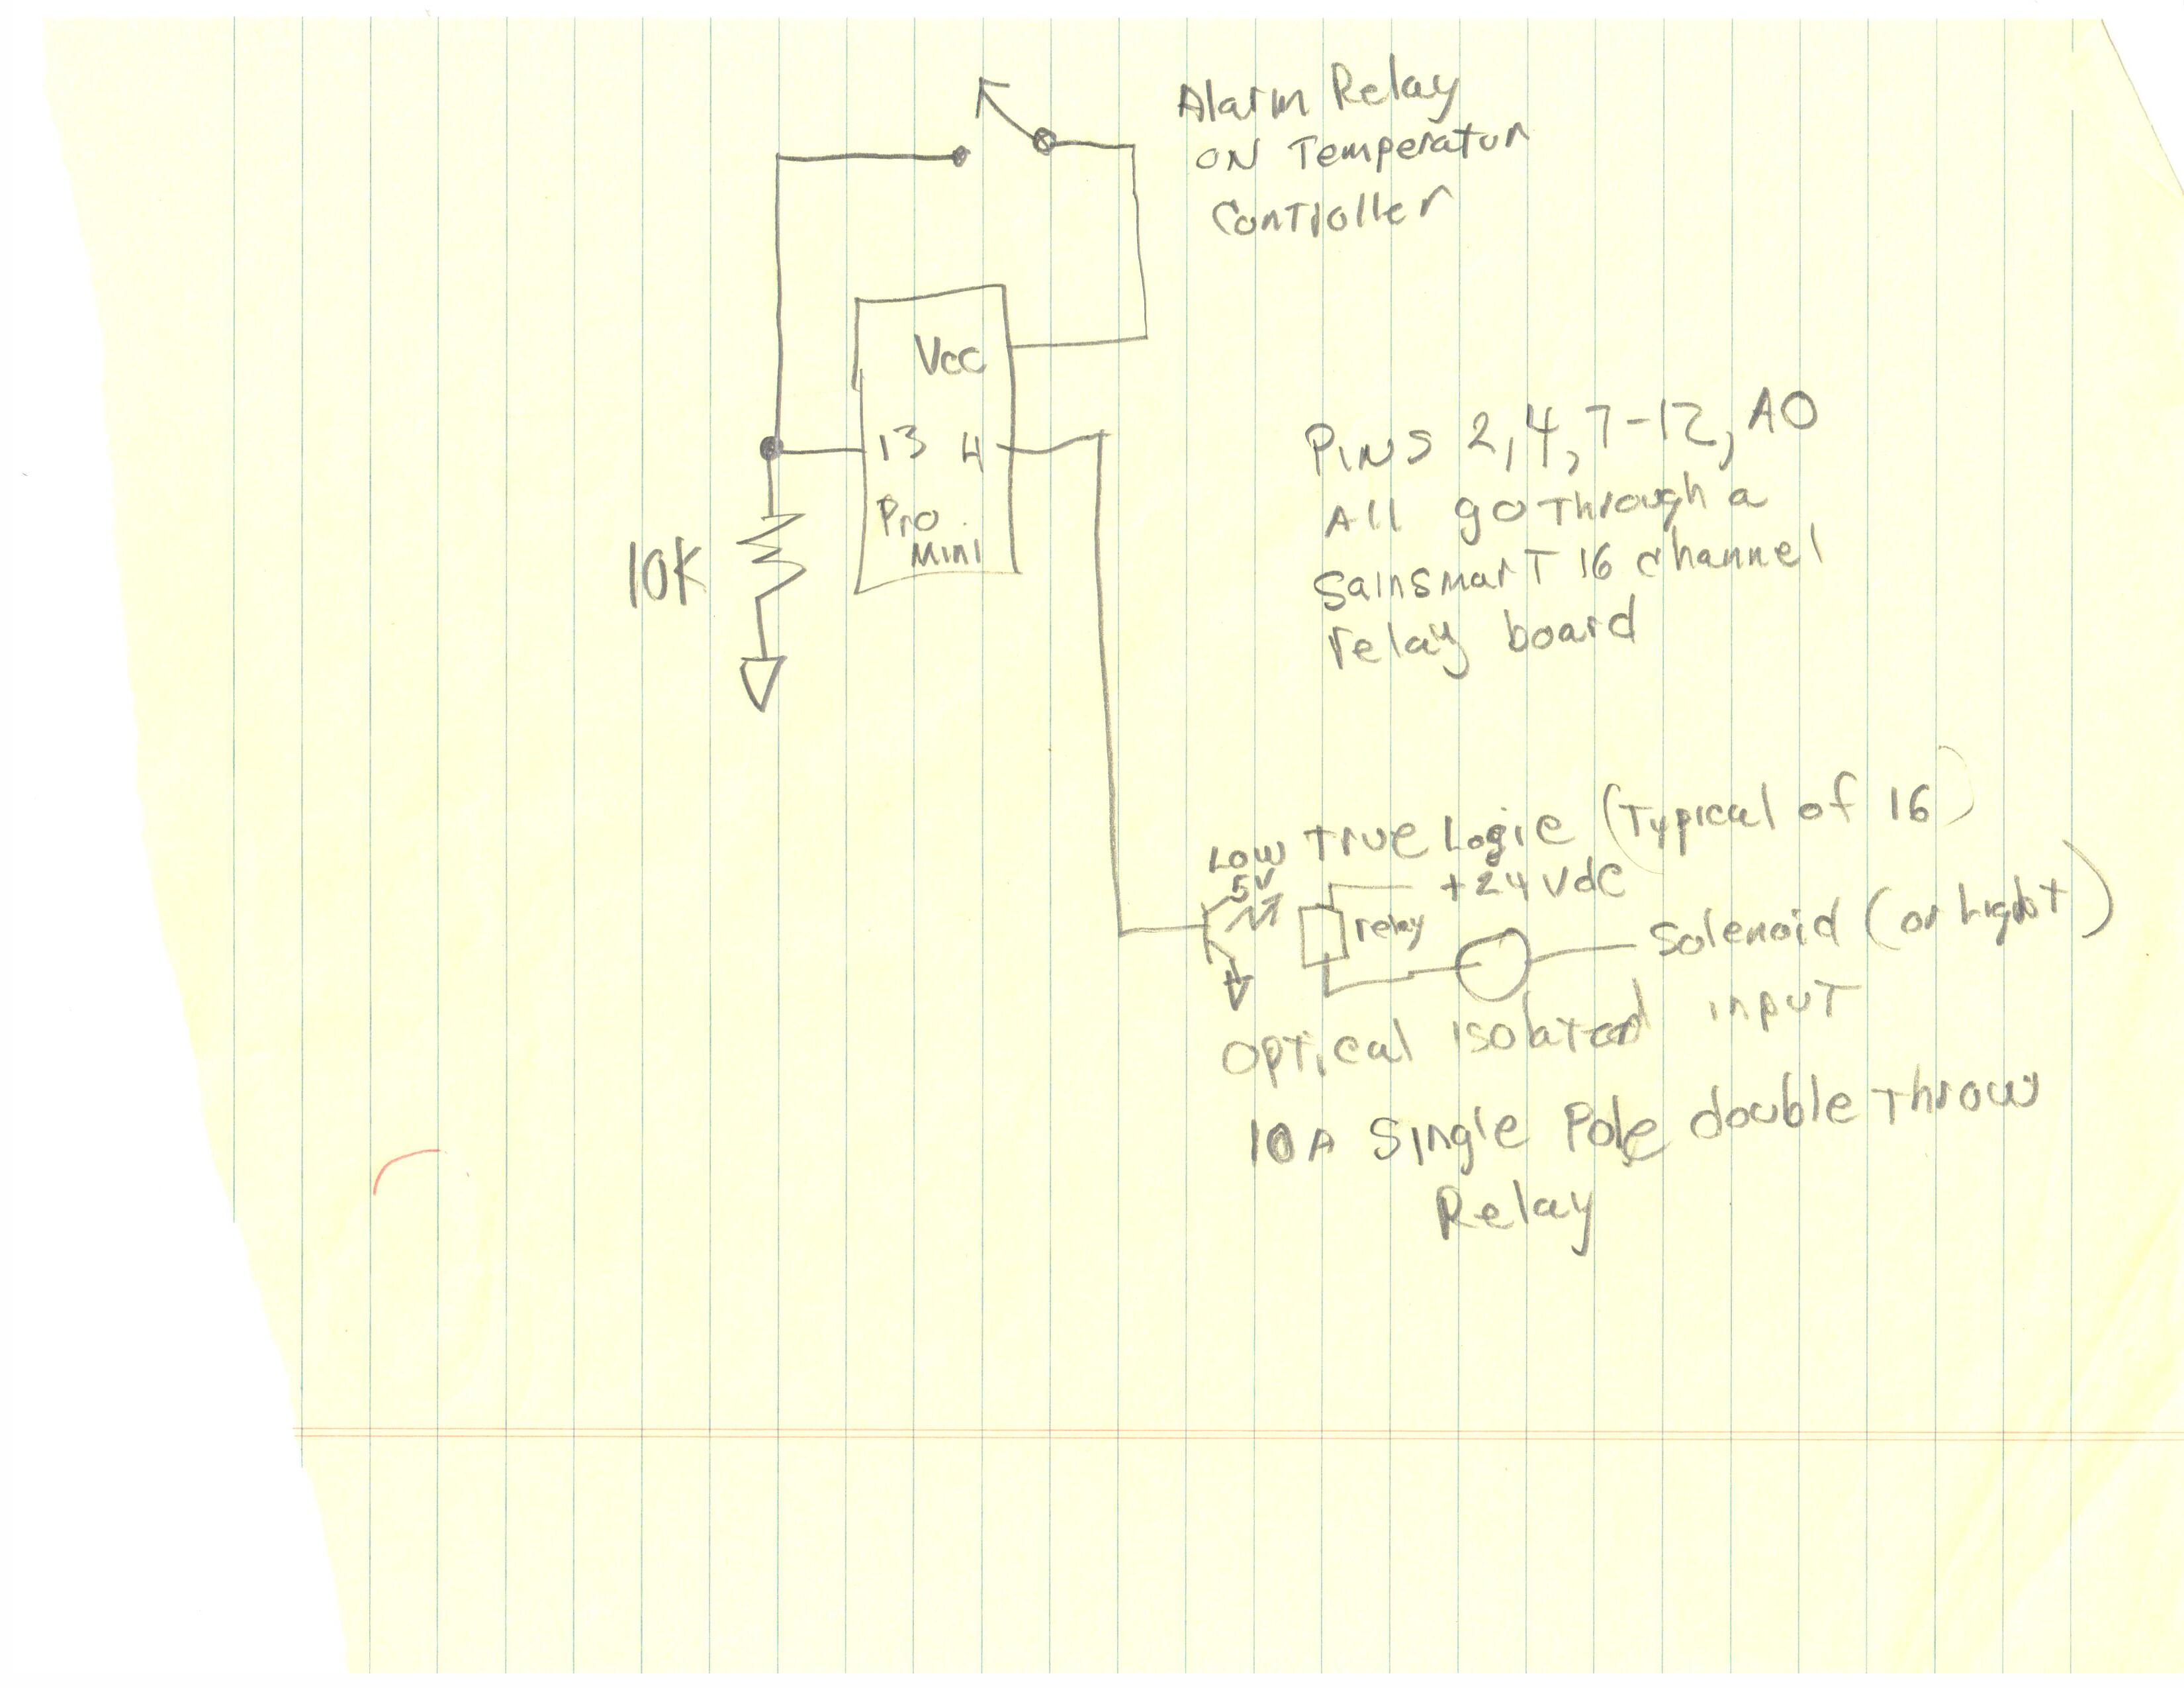 Alarm Relay
ON Temperatur
Controller
Vcc
13 4
Pro
Mini
10K
Pins 2,4,7-12, A0
All go Through a
Sainsmart 16 channel
relay board
Low True Logic (Typical of 16)
5V
+24 Vdc
relay
Solenoid (or Light)
Optical Isolated input
10A Single Pole double Throw
Relay